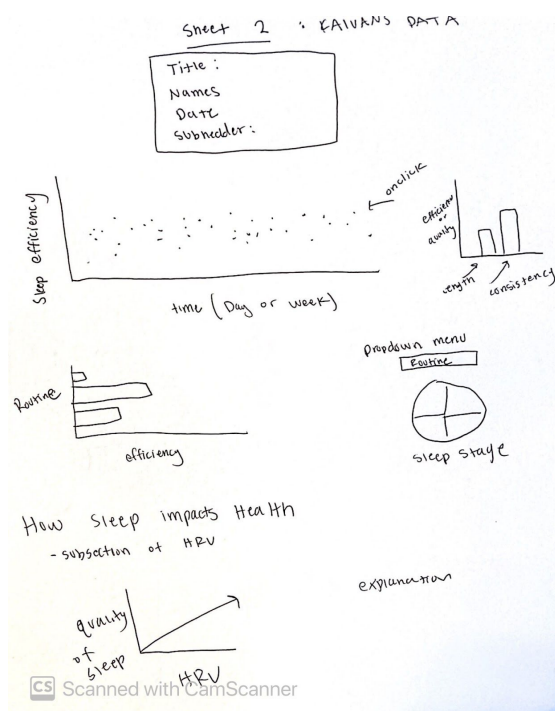 Sheet 2 : KAIVANS DATA
Title :
Names
Date
Subhedder :
Sleep efficiency
onclick
time (Day or week)
efficiency
or
quality
length
consistency
Routine
efficiency
Dropdown menu
Routine
sleep stage
How Sleep impacts Health
- subsection of HRV
quality
of
sleep
HRV
explanation
CS Scanned with CamScanner